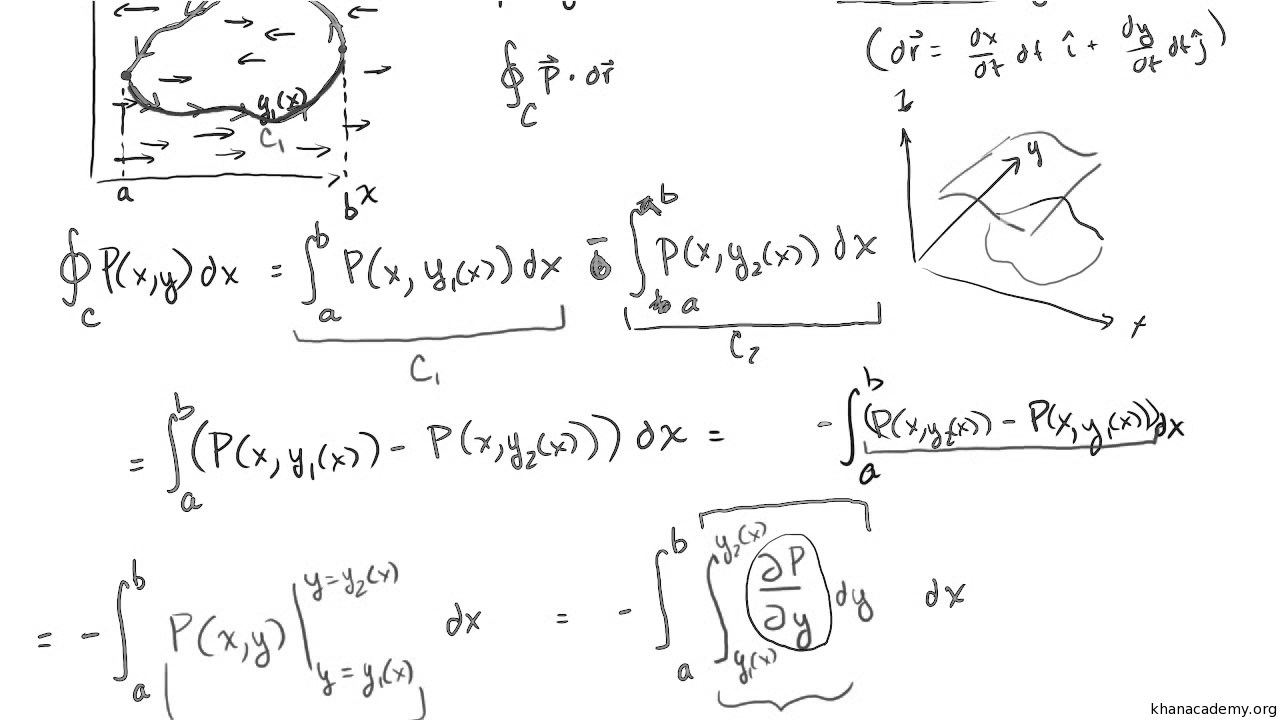 ∮_C P⃗ · dr⃗
(dr⃗ = dx/dt dt î + dy/dt dt ĵ)
y₁(x)
C₁
a
b
x
z
y
x
∮_C P(x,y) dx = ∫_a^b P(x, y₁(x)) dx - ∫_a^b P(x,y₂(x)) dx
C₁
C₂
= ∫_a^b (P(x,y₁(x)) - P(x,y₂(x))) dx = - ∫_a^b (P(x,y₂(x)) - P(x,y₁(x))) dx
= - ∫_a^b P(x,y) |_{y = y₁(x)}^{y = y₂(x)} dx = - ∫_a^b ∫_{y₁(x)}^{y₂(x)} ∂P/∂y dy dx
khanacademy.org